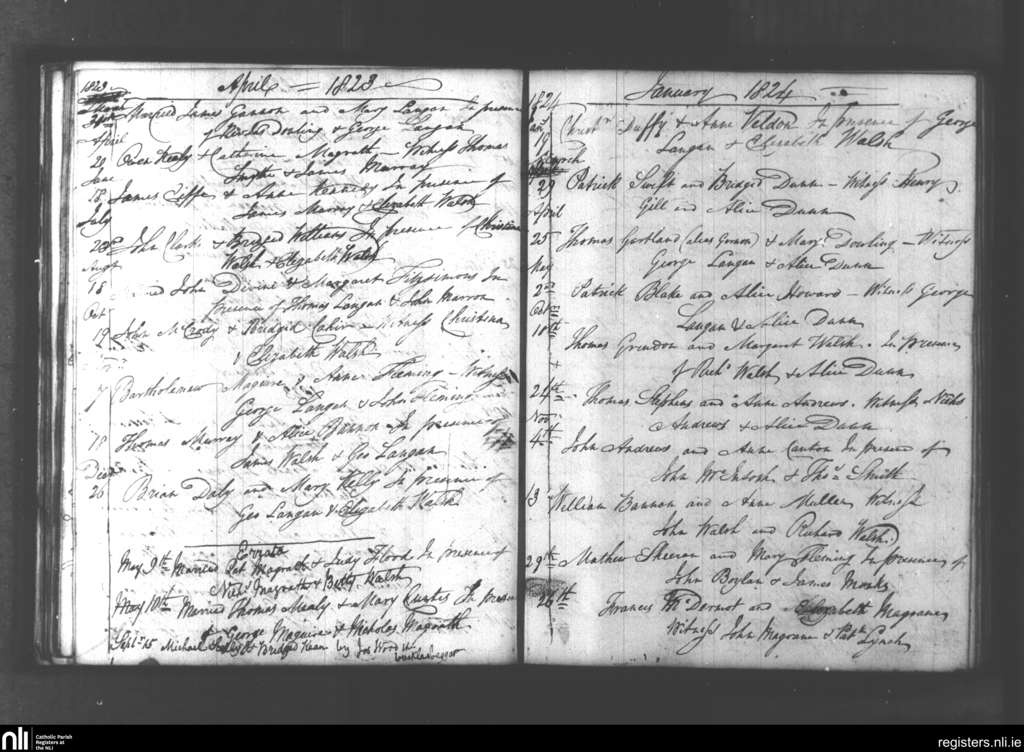 1823
April = 1823
Married James Gannon and Mary Langan In presence
of Dowling & George Langan
April
20 Owen Healy & Catherine Magrath Witness Thomas
Smyth & James Murray
June
18 James & Anne Kennedy In presence of
James Murray & Elizabeth Walsh
July
20 John Clark & Bridged Williams In presence of Christina
Walsh & Elizabeth Walsh
Augt
18 John Divine & Margaret Fitzsimons In
Presence of Thomas Langan & John Marron
Octr
12 John McCrody & Bridgid Witness Christina
& Elizabeth Walsh
7 Bartholomew Maguire & Anne Fleming - Witness
George Langan & John Fleming
18 Thomas Murray & Alice Bannon In presence of
James Walsh & Geo Langan
Decr
26 Brian Daly and Mary Kelly In presence of
Geo Langan & Elizabeth Walsh
Errata
May 9th Married Pat Magrath & Judy Flood In presence of
Nichs Magrath & Betty Walsh
May 10th Married Thomas Nealy & Mary In presence
of George Maguire & Nicholas Magrath
Sept 15 Michael & Bridged Kean by Jos Wood
January 1824
1824
Jany
19 Christr Duffy & Anne Veldon In presence of George
Langan & Elizabeth Walsh
March
29 Patrick Swift and Bridged Dunn - Witness Henry
Gill and Alice Dunn
April
25 Thomas Gartland (alias Gernon) & Mary Dowling - Witness
George Langan & Alice Dunn
May
2nd Patrick Blake and Alice Howard - Witness George
Langan & Alice Dunn
Octr
10th Thomas Grendon and Margaret Walsh. In presence
of Richd Walsh & Alice Dunn
24th Thomas Stephens and Anne Andrews. Witness Nichs
Andrews & Alice Dunn
Novr
4th John Andrews and Anne Canton In presence of
John McEntosh & Thos Smith
13 William Bannon and Anne Mullen Witness
John Walsh and Richard Walsh
29th Mathew Sheeran and Mary Fleming In presence of
John Boylan & James Monks
26th Francis McDermot and Elizabeth Magrane
Witness John Magrane & Patk Lynch
nli
Catholic Parish
Registers at
the NLI
registers.nli.ie